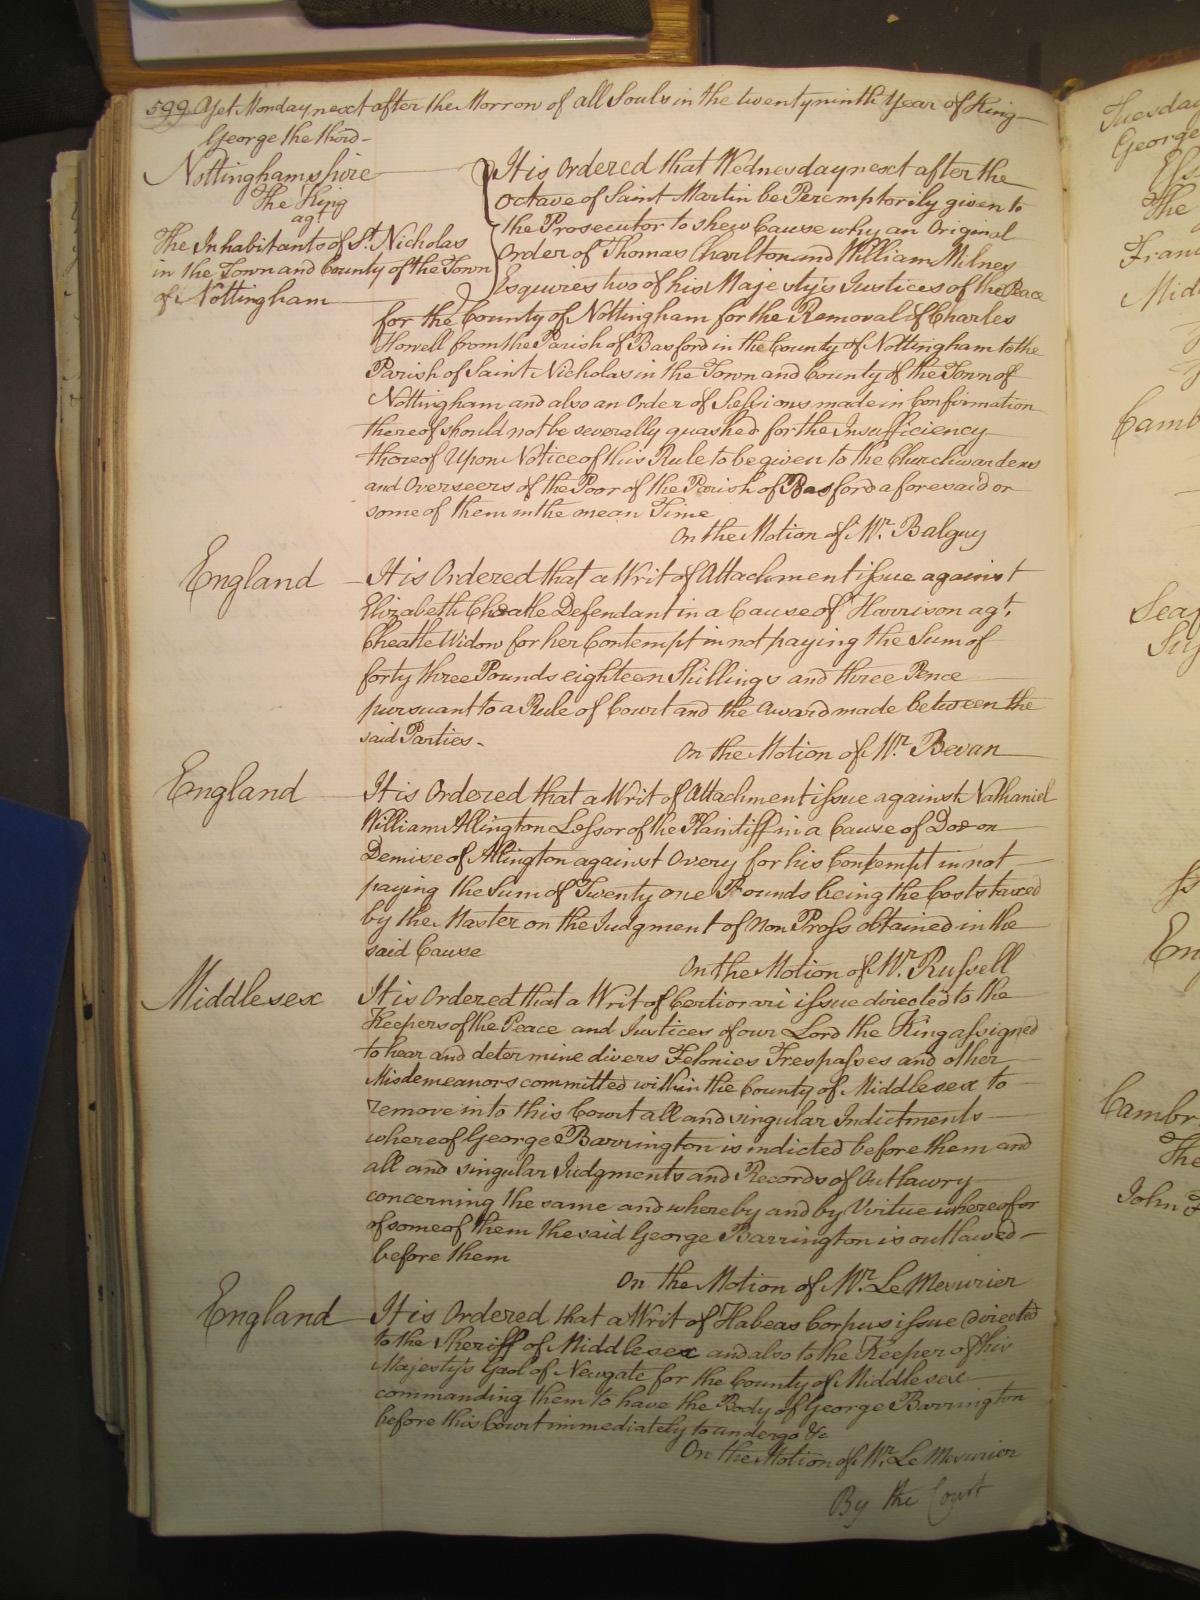 599 Yet Monday next after the Morrow of all Souls in the twenty ninth Year of King
George the third
Nottinghamshire
The King
agt
The Inhabitants of St. Nicholas
in the Town and County of the Town
of Nottingham
It is Ordered that Wednesday next after the
octave of Saint Martin be Peremptorily given to
the Prosecutor to shew Cause why an Original
Order of Thomas Charlton and William Milnes
Esquires two of his Majesty's Justices of the Peace
for the County of Nottingham for the Removal of Charles
Howell from the Parish of Basford in the County of Nottingham to the
Parish of Saint Nicholas in the Town and County of the Town of
Nottingham and also an Order of Sessions made in Confirmation
thereof should not be severally quashed for the Insufficiency
thereof Upon Notice of this Rule to be given to the Churchwardens
and Overseers of the Poor of the Parish of Basford aforesaid or
some of them in the mean Time
On the Motion of Mr. Balguy
England
It is Ordered that a Writ of Attachment issue against
Elizabeth Cheatle Defendant in a Cause of Harrison agt.
Cheatle Widow for her Contempt in not paying the Sum of
forty three Pounds eighteen Shillings and three Pence
pursuant to a Rule of Court and the award made between the
said Parties.
On the Motion of Mr. Bevan
England
It is Ordered that a Writ of Attachment issue against Nathaniel
William Allington Lessor of the Plaintiff in a Cause of Doe on
Demise of Allington against Overy for his Contempt in not
paying the Sum of Twenty one Pounds being the Costs taxed
by the Master on the Judgment of Non Pross obtained in the
said Cause
On the Motion of Mr. Russell
Middlesex
It is Ordered that a Writ of Certiorari issue directed to the
Keepers of the Peace and Justices of our Lord the King assigned
to hear and determine divers Felonies Trespasses and other
Misdemeanors committed within the County of Middlesex to
remove into this Court all and singular Indictments
whereof George Barrington is indicted before them and
all and singular Judgments and Records of Outlawry
concerning the same and whereby and by Virtue whereof or
of some of them the said George Barrington is outlawed
before them
On the Motion of Mr. Le Mesurier
England
It is Ordered that a Writ of Habeas Corpus issue directed
to the Sheriff of Middlesex and also to the Keeper of his
Majesty's Gaol of Newgate for the County of Middlesex
commanding them to have the Body of George Barrington
before this Court immediately to undergo &c
On the Motion of Mr. Le Mesurier
By the Court
Tuesday
George
The
Cambr
The
John